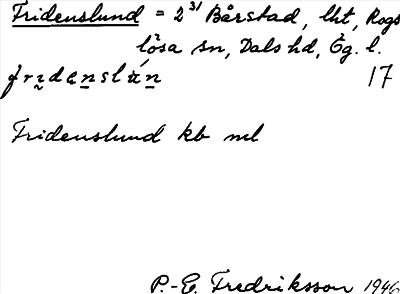 Fridenslund = 2³¹ Bårstad, lht, Rogs
lösa sn, Dals hd, Ög. l.
fridenslún 17
Fridenslund kb ml
P.-E. Fredriksson 1946